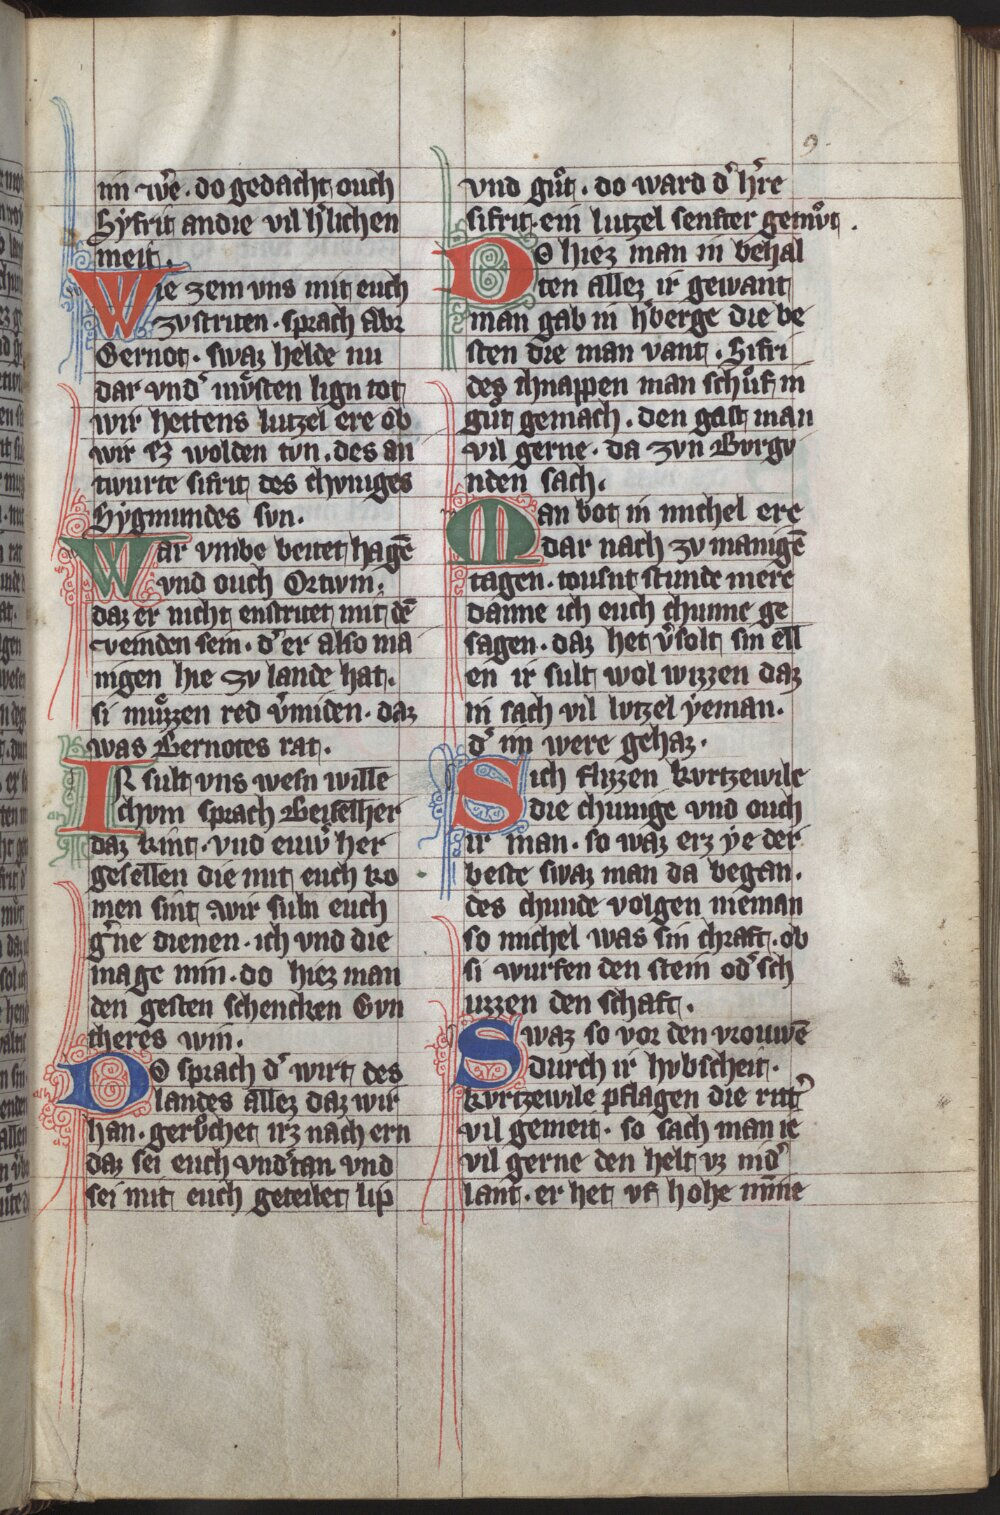 9.
im wͤe. do gedacht ouch
Syfrit andie vil h̾lichen
meit.
Wie zem vns mit euch
zv striten. sprach ab̾
Gernot. swaz helde nu
dar vnd̾ mvͤsten lign tot
wir hettens lutzel ere ob
wir ez wolden tvn. des an
twurte sifrit des chvniges
Sygmundes svn.
War vmbe beitet hagē
vnd ouch Ortwin.
daz er nicht enstritet mit dē
veinden sein. d̾ er also ma
nigen hie zv lande hat.
si mvͤzzen red v̾miden. daz
was Gernotes rat.
IR sult vns wesn wille
chom sprach Geiselher
daz kint. vnd euw̾ her
gesellen die mit euch ko
men sint wir suln euch
g̾ne dienen. ich vnd die
mage min. do hiez man
den gesten schencken Gvn
theres win.
DO sprach d̾ wirt des
landes allez daz wir
han. gervͦchet irz nach ern
daz sei euch vnd̾tan vnd
sei mit euch geteilet lip
vnd gvͦt. do ward d̾ h̾re
sifrit. ein lutzel senfter gemvͦt.
DO hiez man in behal
ten allez ir gewant
man gab in h̾berge die be
sten die man vant. Sifri
des chnappen man schvͦf in
gvͦt gemach. den gast man
vil gerne. da zvn Bvrgv
nden sach.
Man bot in michel ere
dar nach zv manigē
tagen. tousnt stunde mere
danne ich euch chunne ge
sagen. daz het v̾solt sin ell
en ir sult wol wizzen daz
in sach vil lvtzel yeman.
d̾ im were gehaz.
Sich flizzen kvrtzewile
die chunige vnd ouch
ir man. so waz erz ye der
beste swaz man da began.
des chunde volgen nieman
so michel was sin chraft. ob
si wurfen den stein od̾ sch
uzzen den schaft.
Swaz so vor den vrouwē
durch ir hvbscheit.
kvrtzewile pflagen die ritt̾
vil gemeit. so sach man ie
vil gerne den helt vz nid̾
lant. er het vf hohe minne